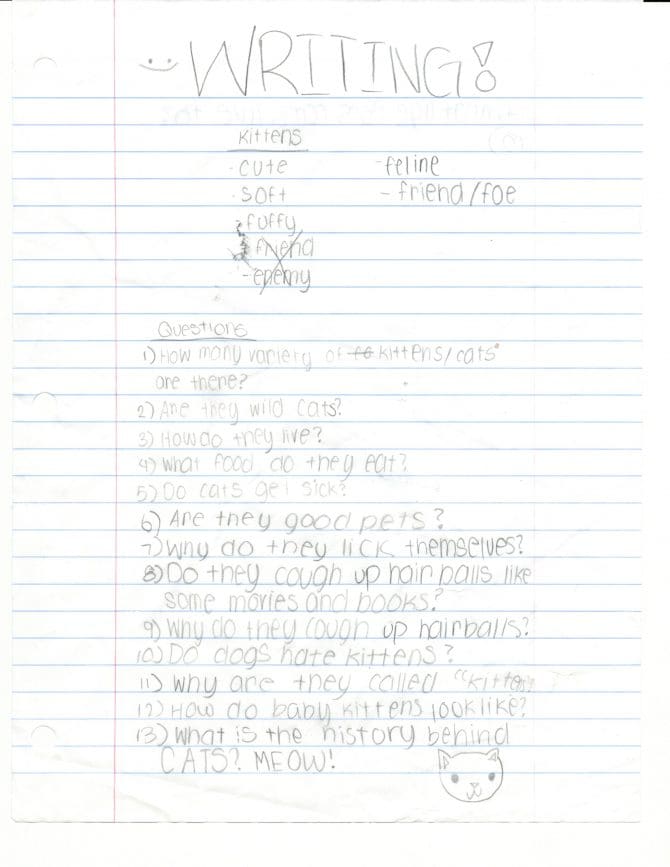 WRITING!
Kittens
- cute
- feline
- soft
- friend/foe
- fuffy
- friend
- enemy
Questions
1) How many variety of kittens/cats
are there?
2) Are they wild cats?
3) How do they live?
4) What food do they eat?
5) Do cats get sick?
6) Are they good pets?
7) Why do they lick themselves?
8) Do they cough up hair balls like
some movies and books?
9) Why do they cough up hairballs?
10) Do dogs hate kittens?
11) Why are they called "kitten
12) How do baby kittens look like?
13) What is the history behind
CATS? MEOW!